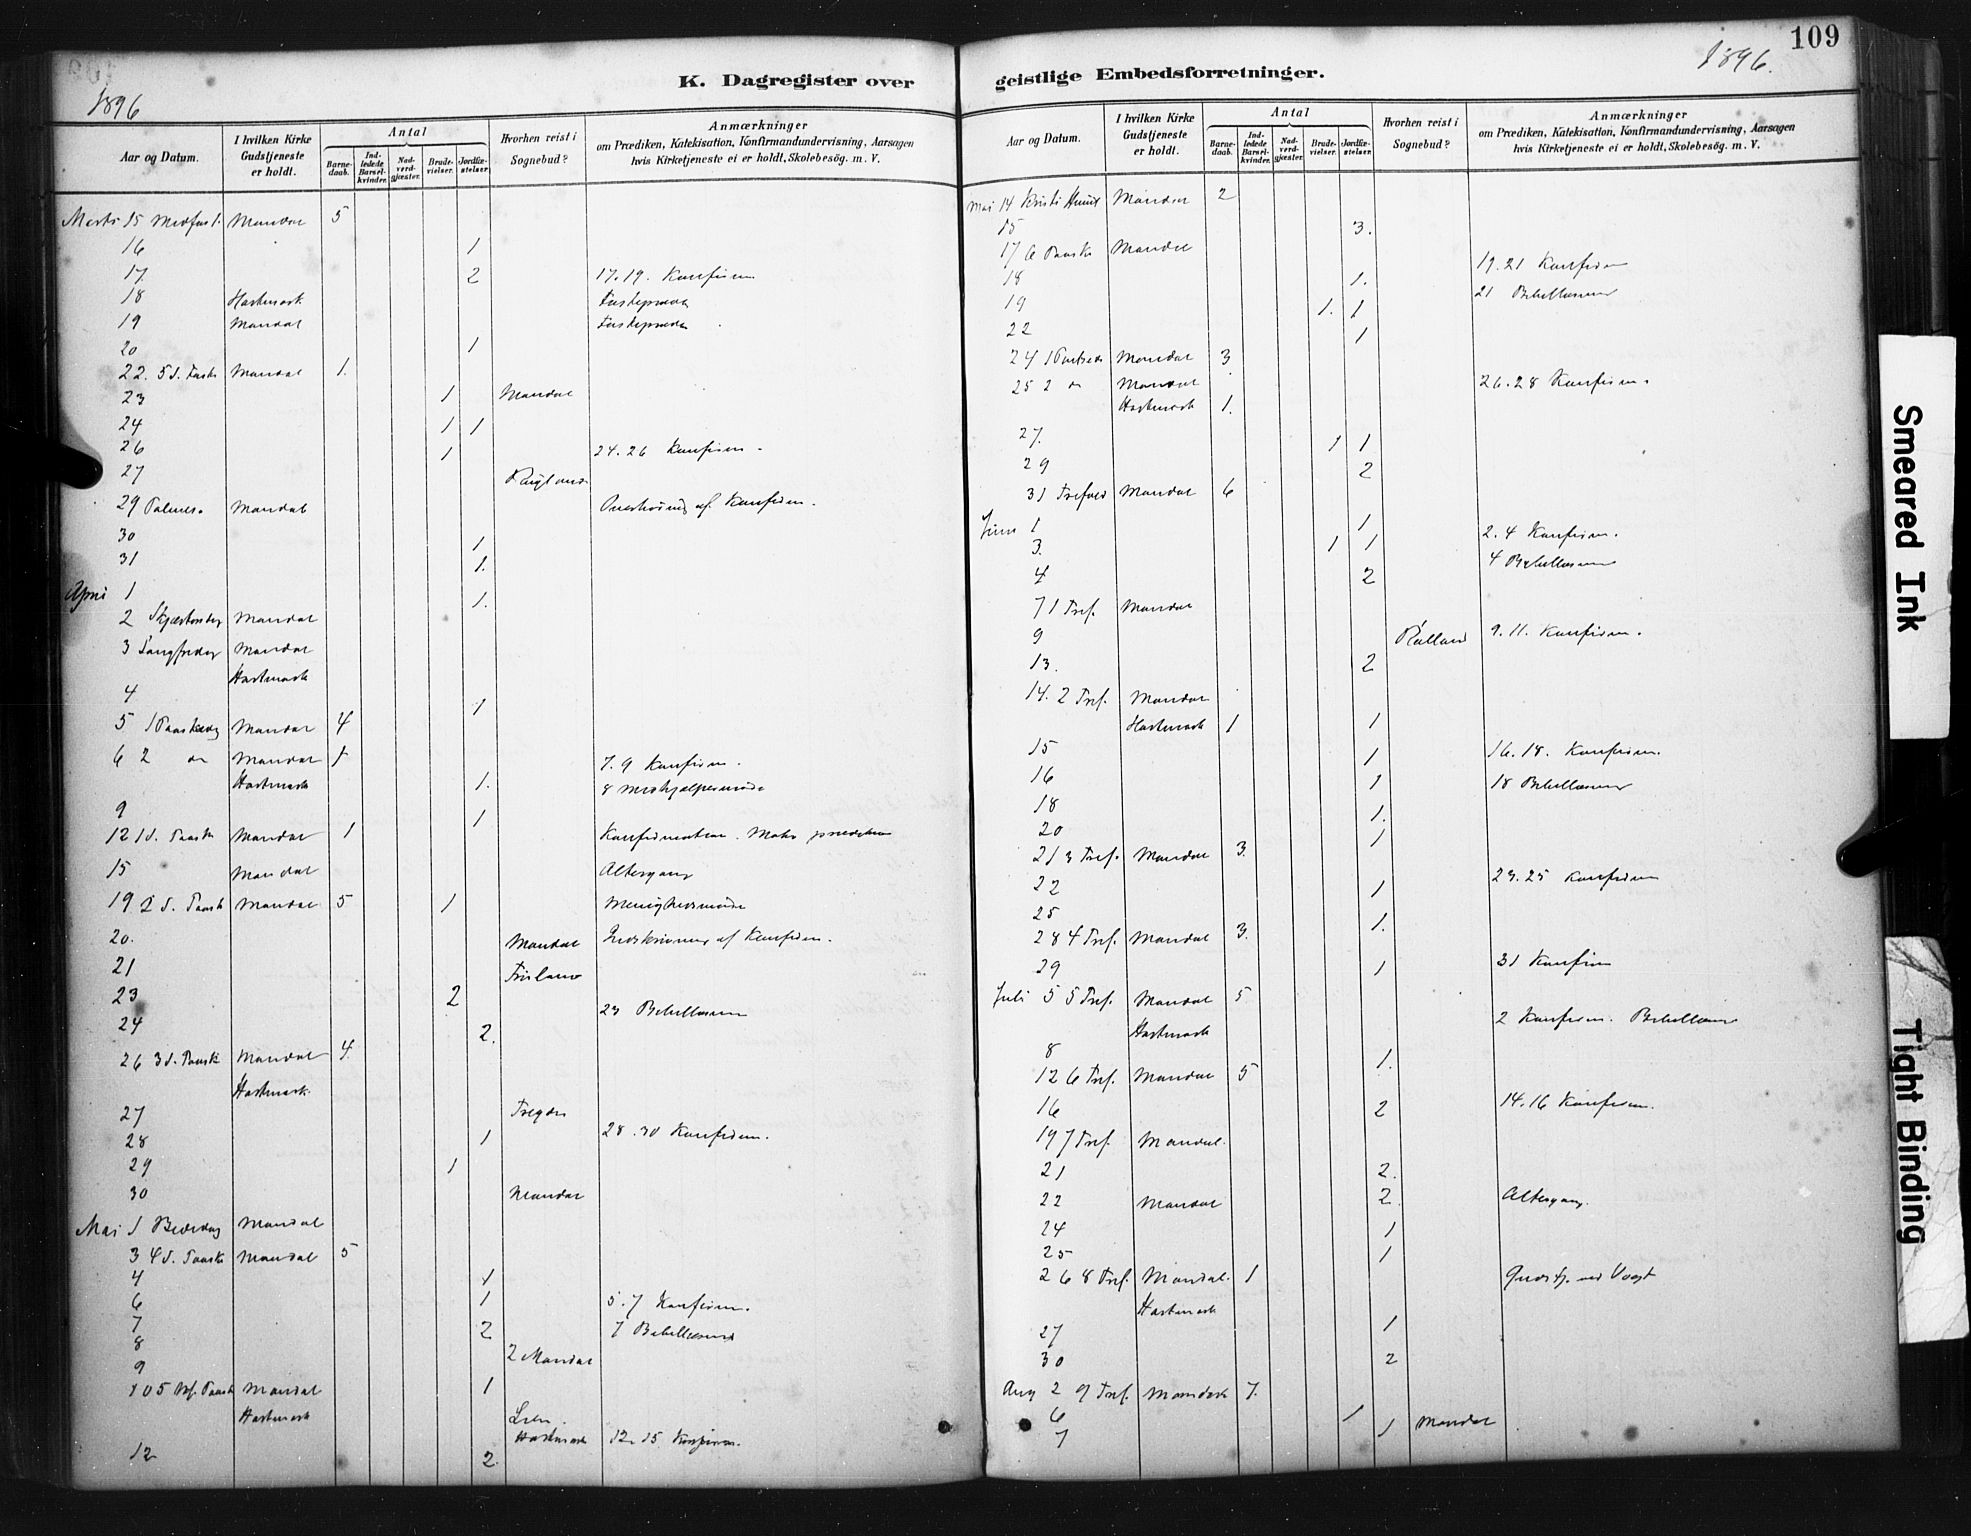 K. Dagregister over
1896
Aar og Datum. I hvilken Kirke Gudstjeneste er holdt. Antal Barnedaab. Indledede Barselkvinder. Nadverdgjæster. Brudevielser. Jordfæstelser. Hvorhen reist i Sognebud? Anmærkninger om Prædiken, Katekisation, Konfirmandundervisning, Aarsagen hvis Kirketjeneste ei er holdt, Skolebesøg. m. V.
Marts 15 Midfast. Mandal 5
16 1
17 2 17.19. Konfirm
18 Hartmark
19 Mandal
20 1
22. 5 S. Faste Mandal 1.
23 1 Mandal
24 1 1
26 1 24.26 Konfirm.
27
29 Palmes. Mandal Overhøring af Konfirm.
30 1
31 1.
April 1 1.
2 Skjærtorsdag Mandal
3 Langfredag Mandal
Hartmark
4 1
5 1 Paaskedag Mandal 4
6 2 Mandal 1 7.9 Konfirm.
Hartmark 1. 8
9 1
12 1 S. Paaske Mandal 1 Konfirmation.
15 Mandal Altergang
19 2 S. Paask Mandal 5 1 Menighedsmøde
20. Mandal Indskrivning af Konfirm.
21
23 2 23 Bibellæsning
24 2.
26 3 S. Paask Mandal 4
Hartmark
27 Tregde
28 1 28.30 Konfirm.
29 1
30 Mandal
Mai 1 Bededag Mandal
3 4 S. Paask Mandal 5
4 1
6 1 5.7 Konfirm.
7 2 7 Bibellæsning
8
9 2 Mandal
10 5 S. Paask Mandal 1
Hartmark
Hartmark 12.15 Konfirm.
12 2
109
1896.
geistlige Embedsforretninger.
Aar og Datum. I hvilken Kirke Gudstjeneste er holdt. Antal Barnedaab. Indledede Barselkvinder. Nadverdgjæster. Brudevielser. Jordfæstelser. Hvorhen reist i Sognebud? Anmærkninger om Prædiken, Katekisation, Konfirmandundervisning, Aarsagen hvis Kirketjeneste ei er holdt, Skolebesøg. m. V.
Mai 14 Kristi Himl Mandal 2
15 3.
17 6 Paask Mandal
18 1. 19.21 Konfirm
19 1. 1 21 Bibellæsning
22 1
24 1 Mandal 3
25 2 Mandal 26.28 Konfirm.
Hartmark 1.
27. 1 1
29 2
31 Trefold Mandal 6
Juni 1 1 2.4 Konfirm.
3. 1 1 4 Bibellæsning
4 2
7 1 Tref. Mandal
9 9.11. Konfirm.
13. 2
14. 2 Tref. Mandal
Hartmark 1 1
15 1 16.18. Konfirm.
16 1 18 Bibellæsning
18 1.
20 1
21 3 Tref. Mandal 3.
22 1 23.25 Konfirm
25 1.
28 4 Tref. Mandal 3.
29 1 31 Konfirm
Juli 5 5 Tref. Mandal 5
Hartmark 2 Konfirm. Bibellæsn
8 1.
12 6 Tref. Mandal 5
16 2 14.16 Konfirm.
19 7 Tref. Mandal.
21 2.
22 Mandal 2. Altergang.
24 1
25 1
26 8 Tref. Mandal. 1
Hartmark
27 1
30 2
Aug 2 9 Tref. Mandal 7.
6 1
7 1 Mandal
Smeared Ink
Tight Binding